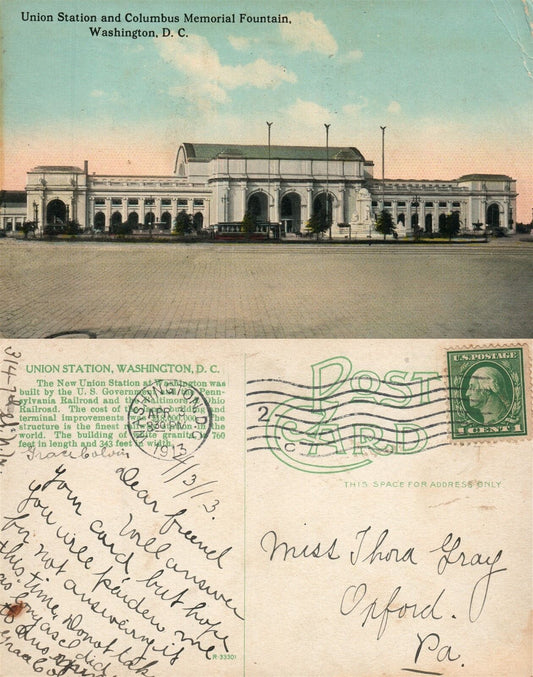 Union Station and Columbus Memorial Fountain,
Washington, D. C.
UNION STATION, WASHINGTON, D. C.
The New Union Station at Washington was
built by the U. S. Government, the Penn-
sylvania Railroad and the Baltimore & Ohio
Railroad. The cost of the building and
terminal improvements was
structure is the finest in the
world. The building of white granite is 760
feet in length and 343 feet in width.
Grace Colvin
WASHINGTON, D.C.
APR
830 PM
1913
2
POST
CARD
U.S. POSTAGE
1 CENT 1
THIS SPACE FOR ADDRESS ONLY
4/13/13.
Dear friend
Will answer
your card but hope
you will pardon me
for not answering it
this time. Do not take
as long as I did
to answer
Grace Co
Miss Thora Gray
Oxford.
Pa.
R-33301